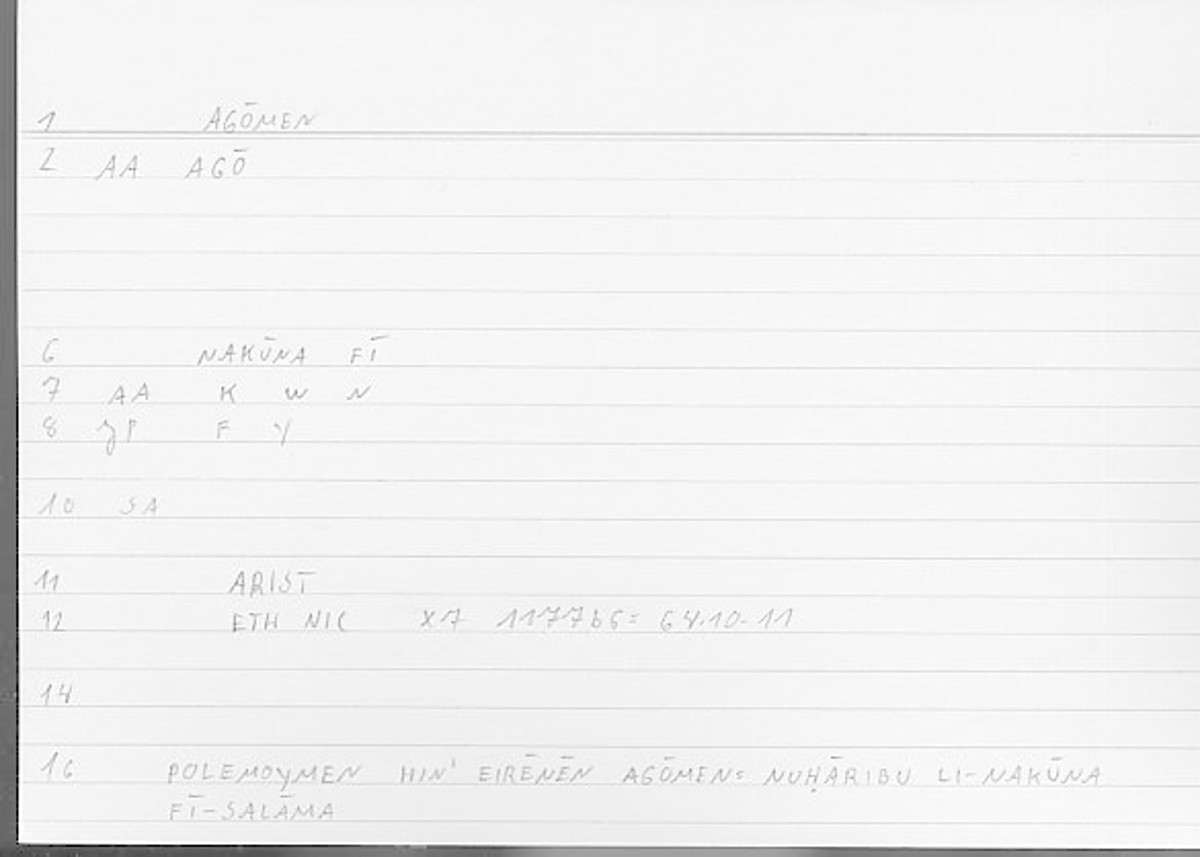 1 AGŌMEN
2 AA AGŌ
6 NAKŪNA FĪ
7 AA K W N
8 F Y
10 SA
11 ARIST
12 ETH NIC X7 1177b5= 64.10-11
14
16 POLEMOYMEN HIN' EIRĒNĒN AGŌMEN= NUḤĀRIBU LI-NAKŪNA
FĪ-SALĀMA